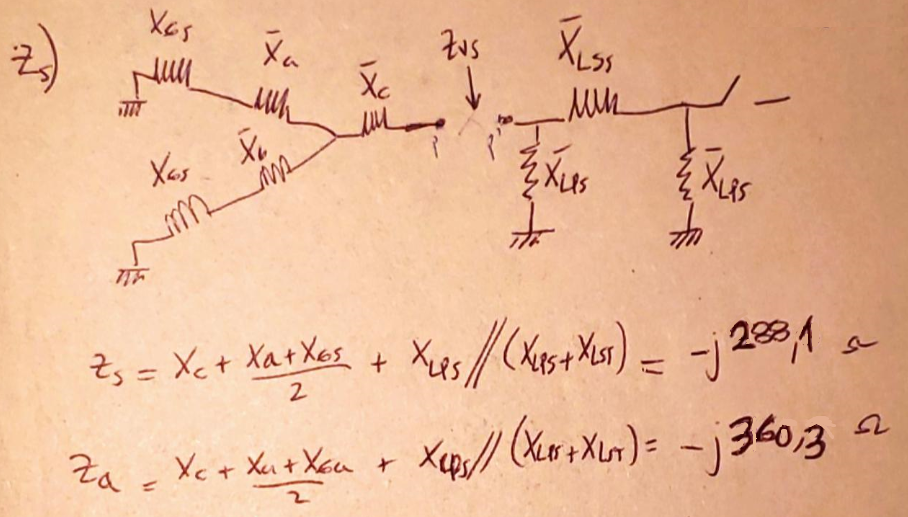 Z_s)
X_GS
X̄_a
X̄_c
Z_VS
X̄_LSS
X_GS
X̄_b
X̄_LPS
X̄_LPS
Z_s = X_c + (X_a + X_GS)/2 + X_LPS // (X_LPS + X_LST) = -j 288,1 Ω
Z_a = X_c + (X_a + X_Ga)/2 + X_LPS // (X_LPS + X_LST) = -j 360,3 Ω